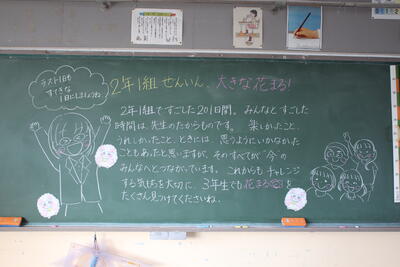 ラスト1日も
すてきな
1日にしましょうね
2年1組 せんいん、大きな花まる!
2年1組ですごした201日間。みんなとすごした
時間は、先生のたからものです。楽しかったこと、
うれしかったこと、ときには、思うようにいかなかった
こともあったと思いますが、そのすべてが今の
みんなへとつながっています。これからもチャレンジ
する気もちを大切に、3年生でも花まるを
たくさん見つけてくださいね。